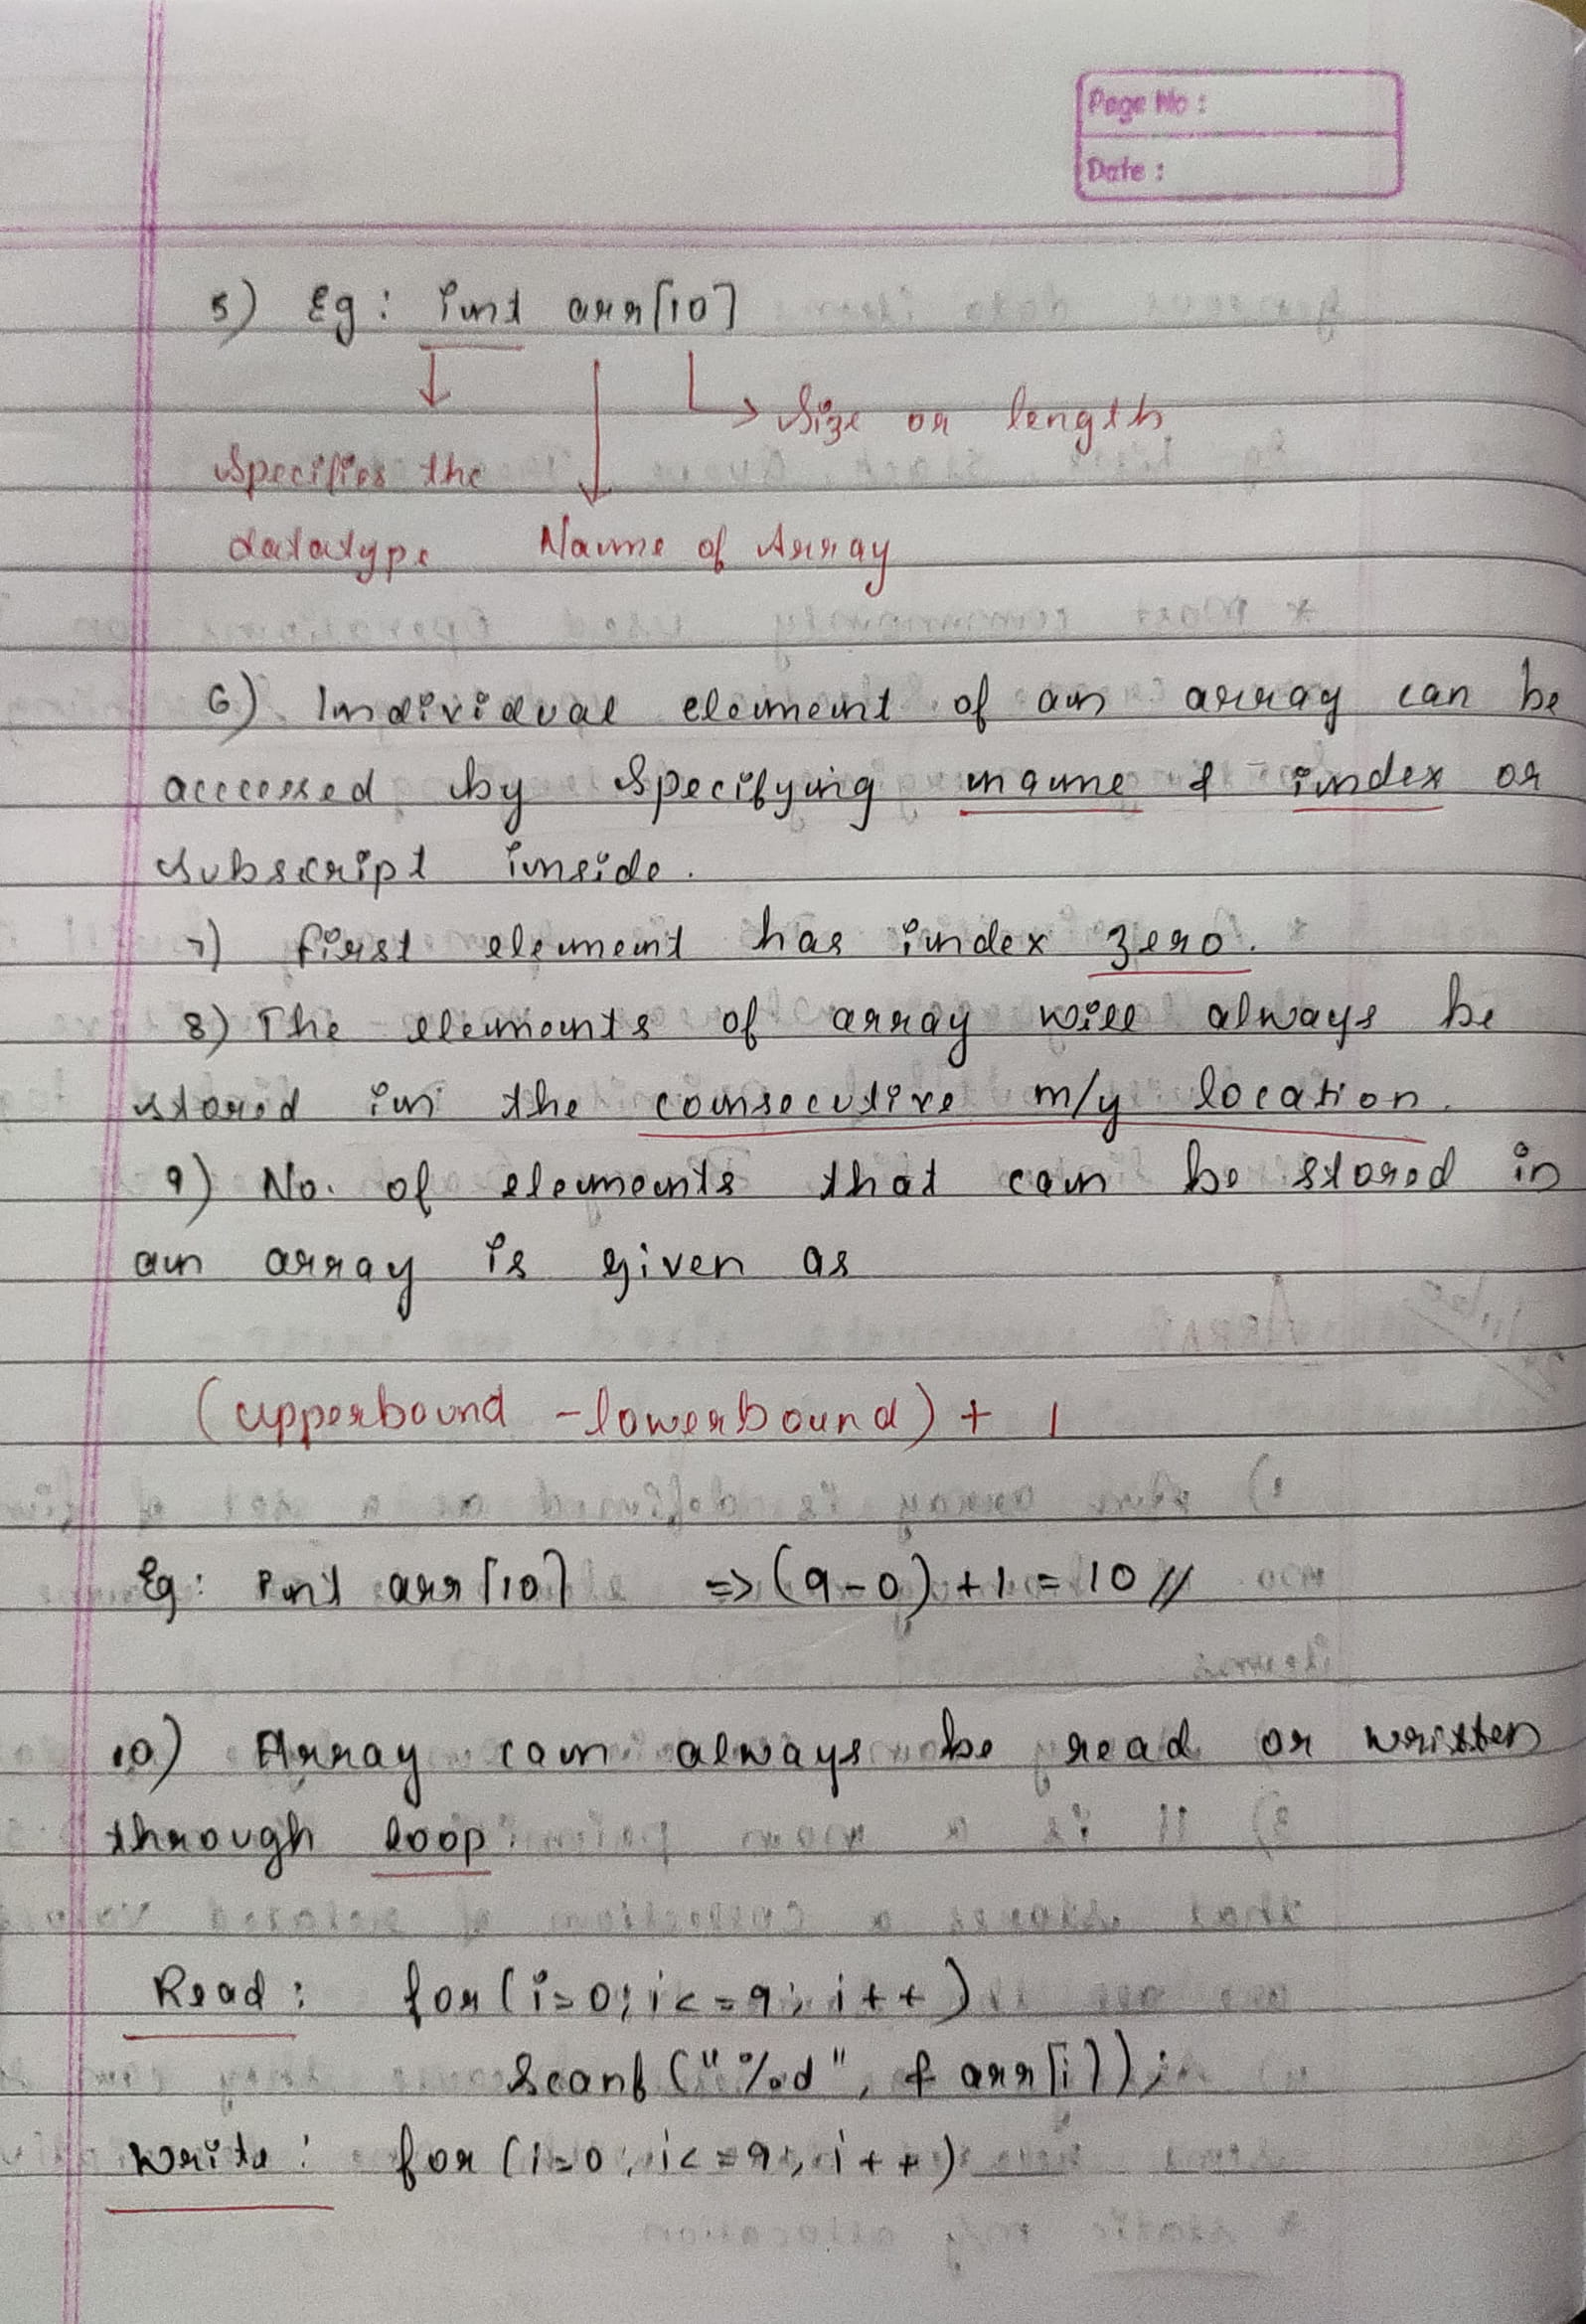 Page No :
Date :
5) Eg : int arr[10]
Size or length
Specifies the
datatype Name of Array
6) Individual element of an array can be
accessed by specifying name & index or
subscript inside.
7) first element has index zero.
8) The elements of array will always be
stored in the consecutive m/y location.
9) No. of elements that can be stored in
an array is given as
(upperbound - lowerbound) + 1
Eg : int arr[10] => (9-0)+1 = 10 //
10) Array can always be read or written
through loop
Read : for(i=0; i<=9; i++)
Scanf("%d", & arr[i]);
Write : for(i=0; i<=9; i++)